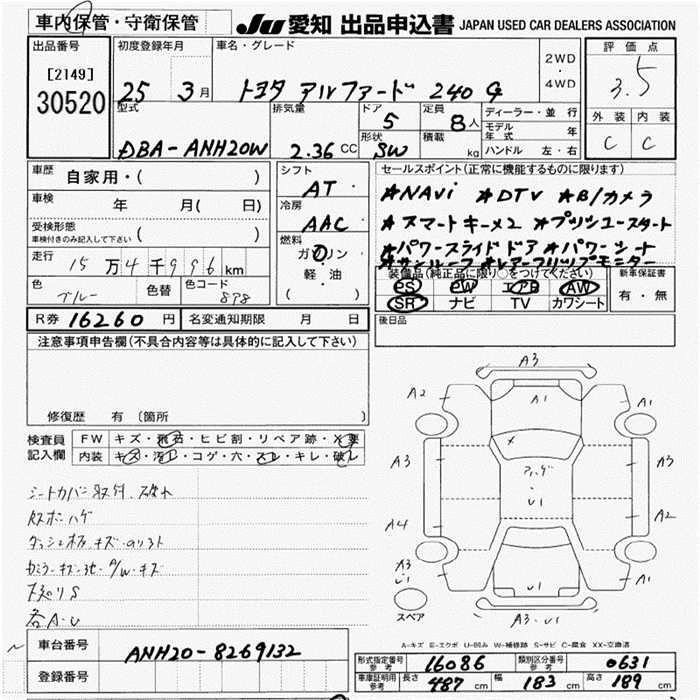 車内保管・守衛保管
JU 愛知 出品申込書 JAPAN USED CAR DEALERS ASSOCIATION
出品番号
[2149]
30520
初度登録年月
25 3月
車名・グレード
トヨタ アルファード 240 G
2WD
・
4WD
評価点
3.5
外装 内装
C C
型式
DBA-ANH20W
排気量
2.36 CC
ドア
5
定員
8人
形状
SW
積載
kg
ディーラー・並行
モデル年式 年
ハンドル 左・右
車歴 自家用・( )
車検 年 月( 日)
受検形態
車検付きのみ記入して下さい ( )
走行 15万4千996km
色 ブルー
色替
色コード 8P8
シフト
AT
冷房
AAC
燃料
ガソリン
軽・油
( )
セールスポイント(正常に機能するものに限ります)
★NAVi ★DTV ★B/カメラ
★スマートキー×2 ★プッシュスタート
★パワースライドドア ★パワーシート
★サンルーフ ★リアフリップモニター
装備品(純正品に限り○をつけてください)
PS PW エアB AW
SR ナビ TV カワシート
新車保証書
有・無
R券 16260円
名変通知期限 月 日
後日品
注意事項申告欄(不具合内容等は具体的に記入して下さい)
修復歴 有 (箇所 )
検査員
記入欄
FW キズ・飛石・ヒビ割・リペア跡・X要
内装 キズ・汚レ・コゲ・穴・スレ・キレ・破レ
シートカバー取付、破れ
キズ
A・U
A3
A2 A1 A1
A3 X A3
ハゲ
・U1
A4 A2
A3
・U1 U1 A1
スペア
A3・U1
A-キズ E-エクボ U-凹み W-補修跡 S-サビ C-腐食 XX-交換済
車台番号 ANH20-8269132
登録番号
形式指定番号
参考 16086
類別区分番号
参考 0631
車庫証明用
参考 長さ 487 cm 幅 183 cm 高さ 189 cm